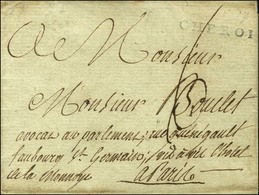 CHEROI
A Monsieur
Monsieur Boulet
avocat au parlement, rue guénégault
faubourg St Germain, vis à vis l'hôtel
de la Monnoye
a Paris